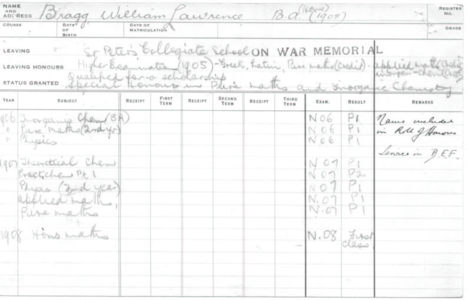 NAME AND ADDRESS Bragg William Lawrence B.A. (1908) REGISTER No.
COURSE DATE OF BIRTH DATE OF MATRICULATION
LEAVING St Peter's Collegiate School ON WAR MEMORIAL
LEAVING HONOURS (1905) - Greek, Latin, Pure math (credit) - applied math
STATUS GRANTED qualified for a scholarship
Special Honours in Pure maths and Inorganic Chemistry
YEAR SUBJECT RECEIPT FIRST TERM RECEIPT SECOND TERM RECEIPT THIRD TERM EXAM. RESULT REMARKS
Inorganic Chem (BA) N06 P1 Name included
" Pure Maths (2nd yr) N06 P1 in Roll of Honour
" Physics N06 P1
Service in B.E.F.
1907 Theoretical Chem N07 P1
Pract. Chem Pt. 1 N07 P2
Physics (2nd year) N07 P1
Applied maths, N07 P1
Pure maths N07 P1
1908 Hons maths N.08 First
class